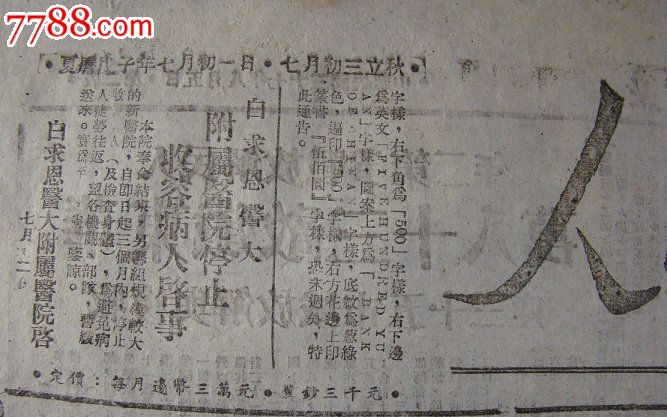 7788.com
·夏曆戊子年七月初一日·七月初三立秋·
人
字樣,右下角爲「500」字樣,右下邊
爲英文「FIVE HUNDRED YU
AN」字樣,圖案上方爲「BANK
OF CHINA」字樣,底紋爲葱綠
色,遍印「500」字樣,右方花邊上印
篆書「伍佰圓」字樣,恐未週知,特
此通告。
白求恩醫大
附屬醫院停止
收容病人啓事
本院奉命結束,另籌組規模較大
的新醫院,自即日起三個月內,停止
收 人(及檢查身體),爲避免病
人徒勞往返,望各機關、部隊,暫緩
送來。 鑒諒。
白求恩醫大附屬醫院啓
七月 日
·定價:每月邊幣三萬元·冀鈔三千元·